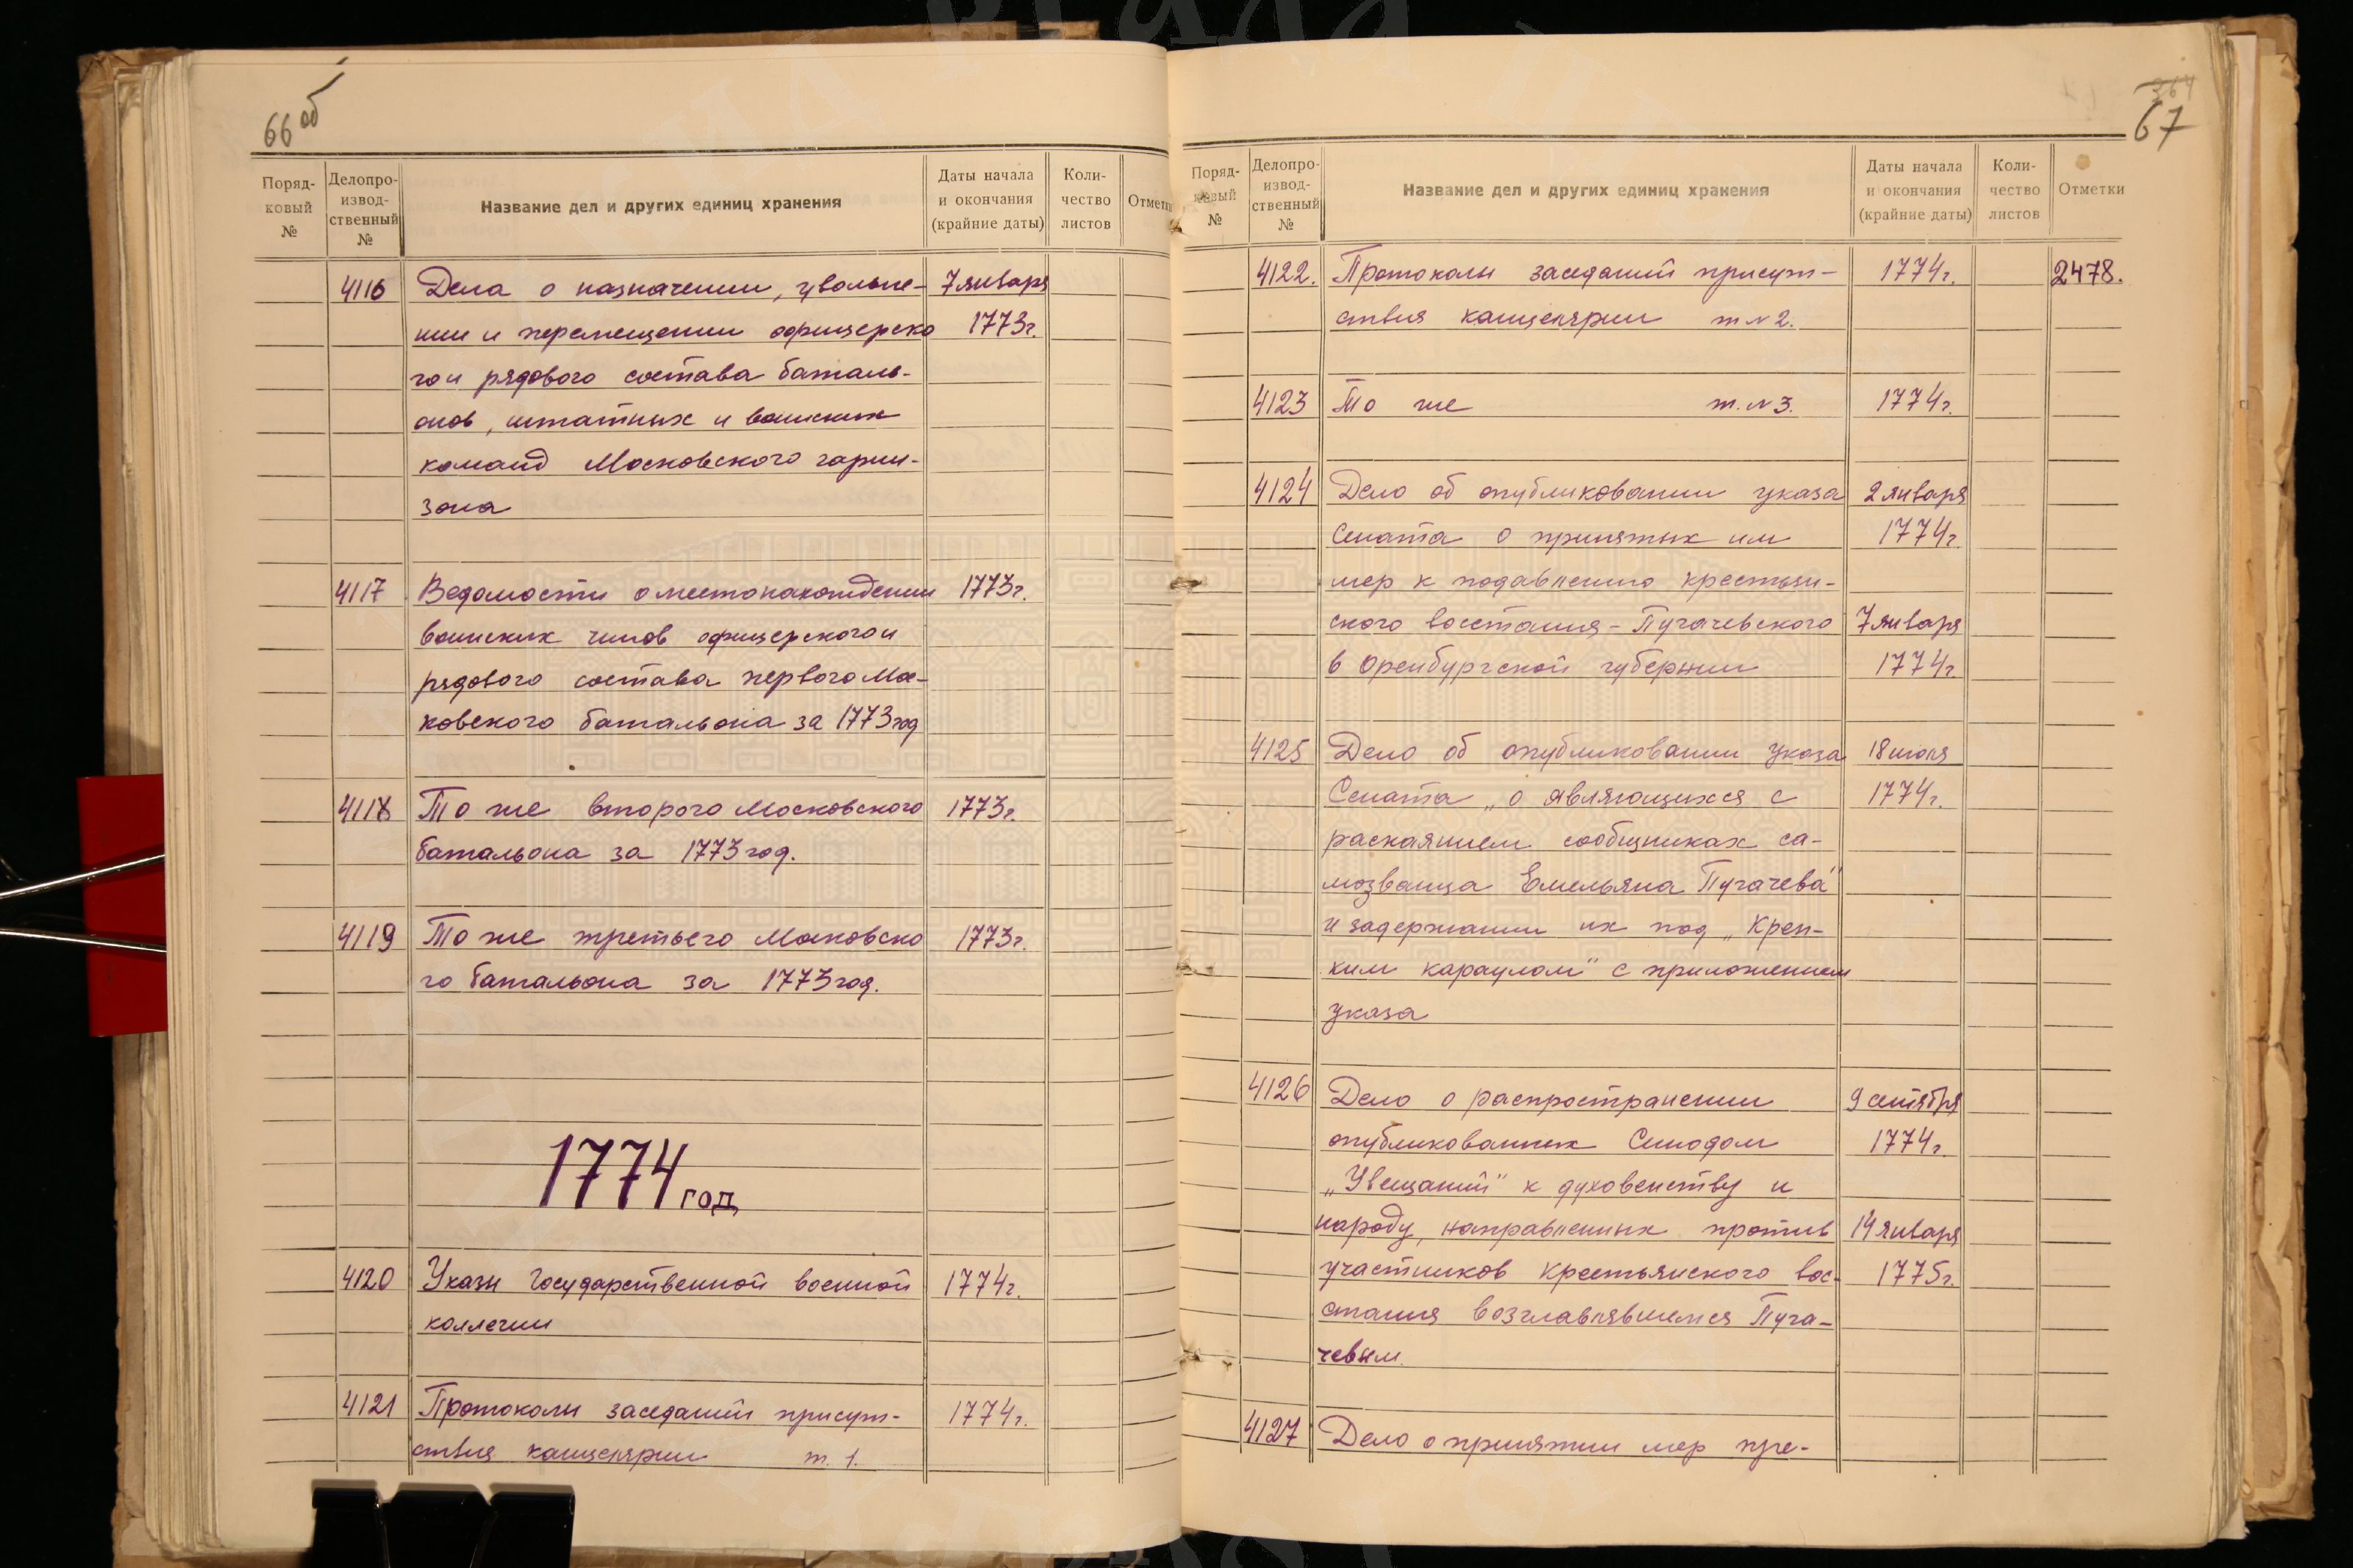 66 об
Поряд-
ковый
№
Делопро-
извод-
ственный
№
Название дел и других единиц хранения
Даты начала
и окончания
(крайние даты)
Коли-
чество
листов
Отметки
4116 Дела о назначении, увольне- 7 января
нии и перемещении офицерско 1773г.
го и рядового состава баталь-
онов, штатных и воинских
команд Московского гарни-
зона
4117 Ведомости о местонахождении 1773г.
воинских чинов офицерского и
рядового состава первого Мос-
ковского батальона за 1773 год
4118 То же второго Московского 1773г.
батальона за 1773 год.
4119 То же третьего Московско 1773г.
го батальона за 1773 год.
1774 год
4120 Указы Государственной военной 1774г.
коллегии
4121 Протоколы заседаний присут- 1774г.
ствия канцелярии т. 1.
364
67
Поряд-
ковый
№
Делопро-
извод-
ственный
№
Название дел и других единиц хранения
Даты начала
и окончания
(крайние даты)
Коли-
чество
листов
Отметки
4122. Протоколы заседаний присут- 1774г. 2478.
ствия канцелярии т №2.
4123 То же т. №3. 1774г.
4124 Дело об опубликовании указа 2 января
Сената о принятых им 1774г
мер к подавлению крестьян-
ского восстания – Пугачевского 7 января
в Оренбургской губернии 1774г.
4125 Дело об опубликовании указа 18 июля
Сената „о являющихся с 1774г.
раскаянием сообщниках са-
мозванца Емельяна Пугачева"
и задержании их под „Креп-
ким караулом" с приложением
указа
4126 Дело о распространении 9 сентября
опубликованных Синодом 1774г.
„Увещаний" к духовенству и
народу, направленных против 14 января
участников Крестьянского вос- 1775г.
стания возглавлявшемся Пуга-
чевым.
4127 Дело о принятии мер пре-